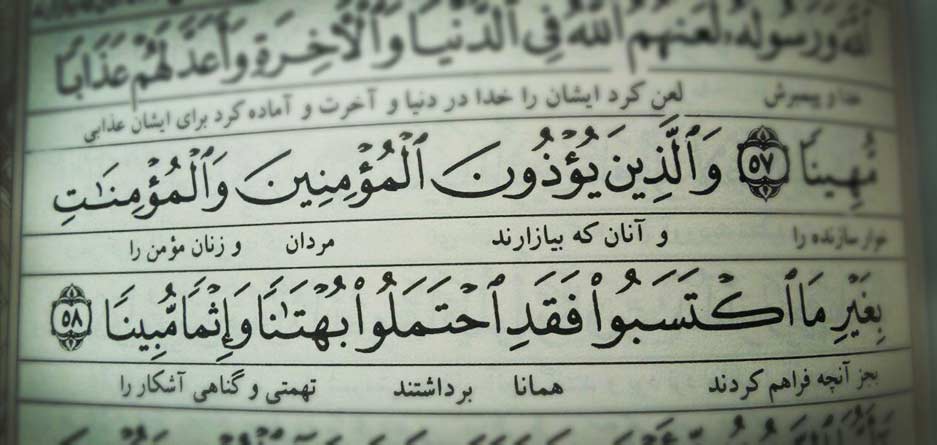 ٱللَّهَ وَرَسُولَهُۥ لَعَنَهُمُ ٱللَّهُ فِى ٱلدُّنْيَا وَٱلْأَخِرَةِ وَأَعَدَّ لَهُمْ عَذَابًا
خدا و پیمبرش لعن کرد ایشان را خدا در دنیا و آخرت و آماده کرد برای ایشان عذابی
مُّهِينًا ٥٧ وَٱلَّذِينَ يُؤْذُونَ ٱلْمُؤْمِنِينَ وَٱلْمُؤْمِنَٰتِ
خوار سازنده را و آنان که بیازارند مردان و زنان مؤمن را
بِغَيْرِ مَا ٱكْتَسَبُوا۟ فَقَدِ ٱحْتَمَلُوا۟ بُهْتَٰنًا وَإِثْمًا مُّبِينًا ٥٨
بجز آنچه فراهم کردند همانا برداشتند تهمتی و گناهی آشکار را